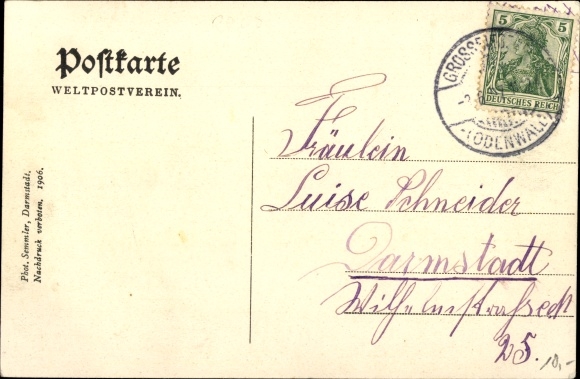 Postkarte
WELTPOSTVEREIN.
5 5
DEUTSCHES REICH
(ODENWALD)
Fräulein
Luise Schneider
Darmstadt
25.
10,-
Phot. Semmler, Darmstadt.
Nachdruck verboten. 1906.